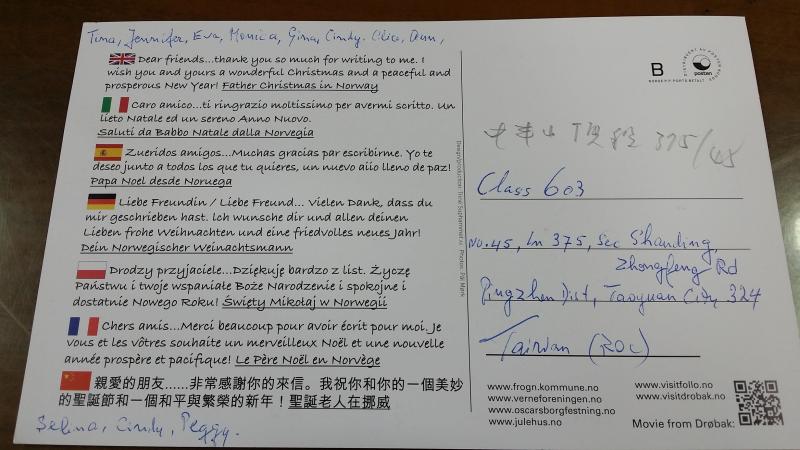 Tina, Jennifer, Eva, Monica, Gina, Cindy. Alice, Ann,
Dear friends...thank you so much for writing to me. I
wish you and yours a wonderful Christmas and a peaceful and
prosperous New Year! Father Christmas in Norway
Caro amico...ti ringrazio moltissimo per avermi scritto. Un
lieto Natale ed un sereno Anno Nuovo.
Saluti da Babbo Natale dalla Norvegia
Zueridos amigos...Muchas gracias par escribirme. Yo te
deseo junto a todos los que tu quieres, un nuevo aiio lleno de paz!
Papa Noel desde Noruega
Liebe Freundin / Liebe Freund... Vielen Dank, dass du
mir geschrieben hast. Ich wunsche dir und allen deinen
Lieben frohe Weihnachten und eine friedvolles neues Jahr!
Dein Norwegischer Weinachtsmann
Drodzy przyjaciele...Dziękuje bardzo z list. Życzę
Państwu i twoje wspaniałe Boże Narodzenie i spokojne i
dostatnie Nowego Roku! Święty Mikołaj w Norwegii
Chers amis...Merci beaucoup pour avoir écrit pour moi. Je
vous et les vôtres souhaite un merveilleux Noël et une nouvelle
année prospère et pacifique! Le Père Noël en Norvège
親愛的朋友......非常感謝你的來信。我祝你和你的一個美妙
的聖誕節和一個和平與繁榮的新年！聖誕老人在挪威
Selina, Cindy, Peggy.
B
posten
375/45
Class 603
No. 45, Ln 375, Sec Shanding,
Zhongfeng Rd
Pingzhen Dist, Taoyuan City 324
Taiwan (ROC)
www.frogn.kommune.no
www.verneforeningen.no
www.oscarsborgfestning.no
www.julehus.no
www.visitfollo.no
www.visitdrobak.no
Movie from Drøbak: